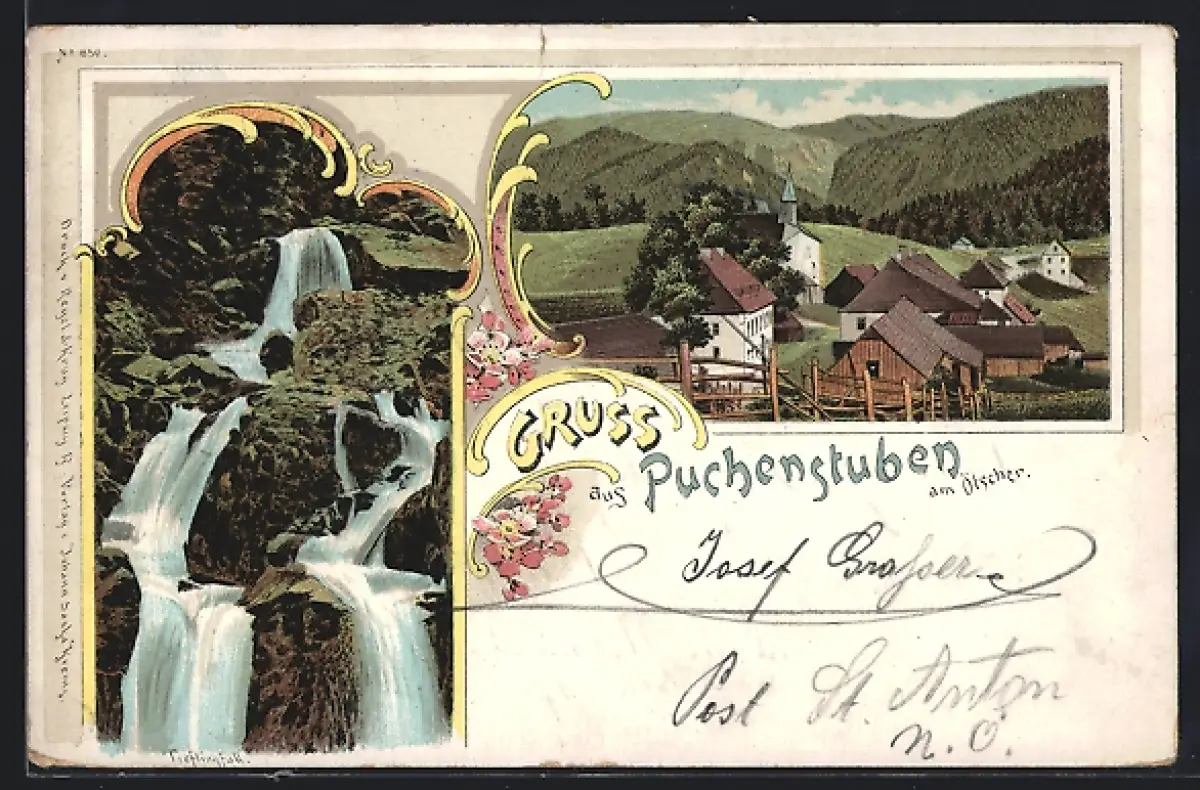 No 850.
GRUSS
aus Puchenstuben
am Ötscher.
Josef
Post St. Anton
N. Ö.
Druck v. Regel & Krug, Leipzig R. Verlag v. Johann Krems.